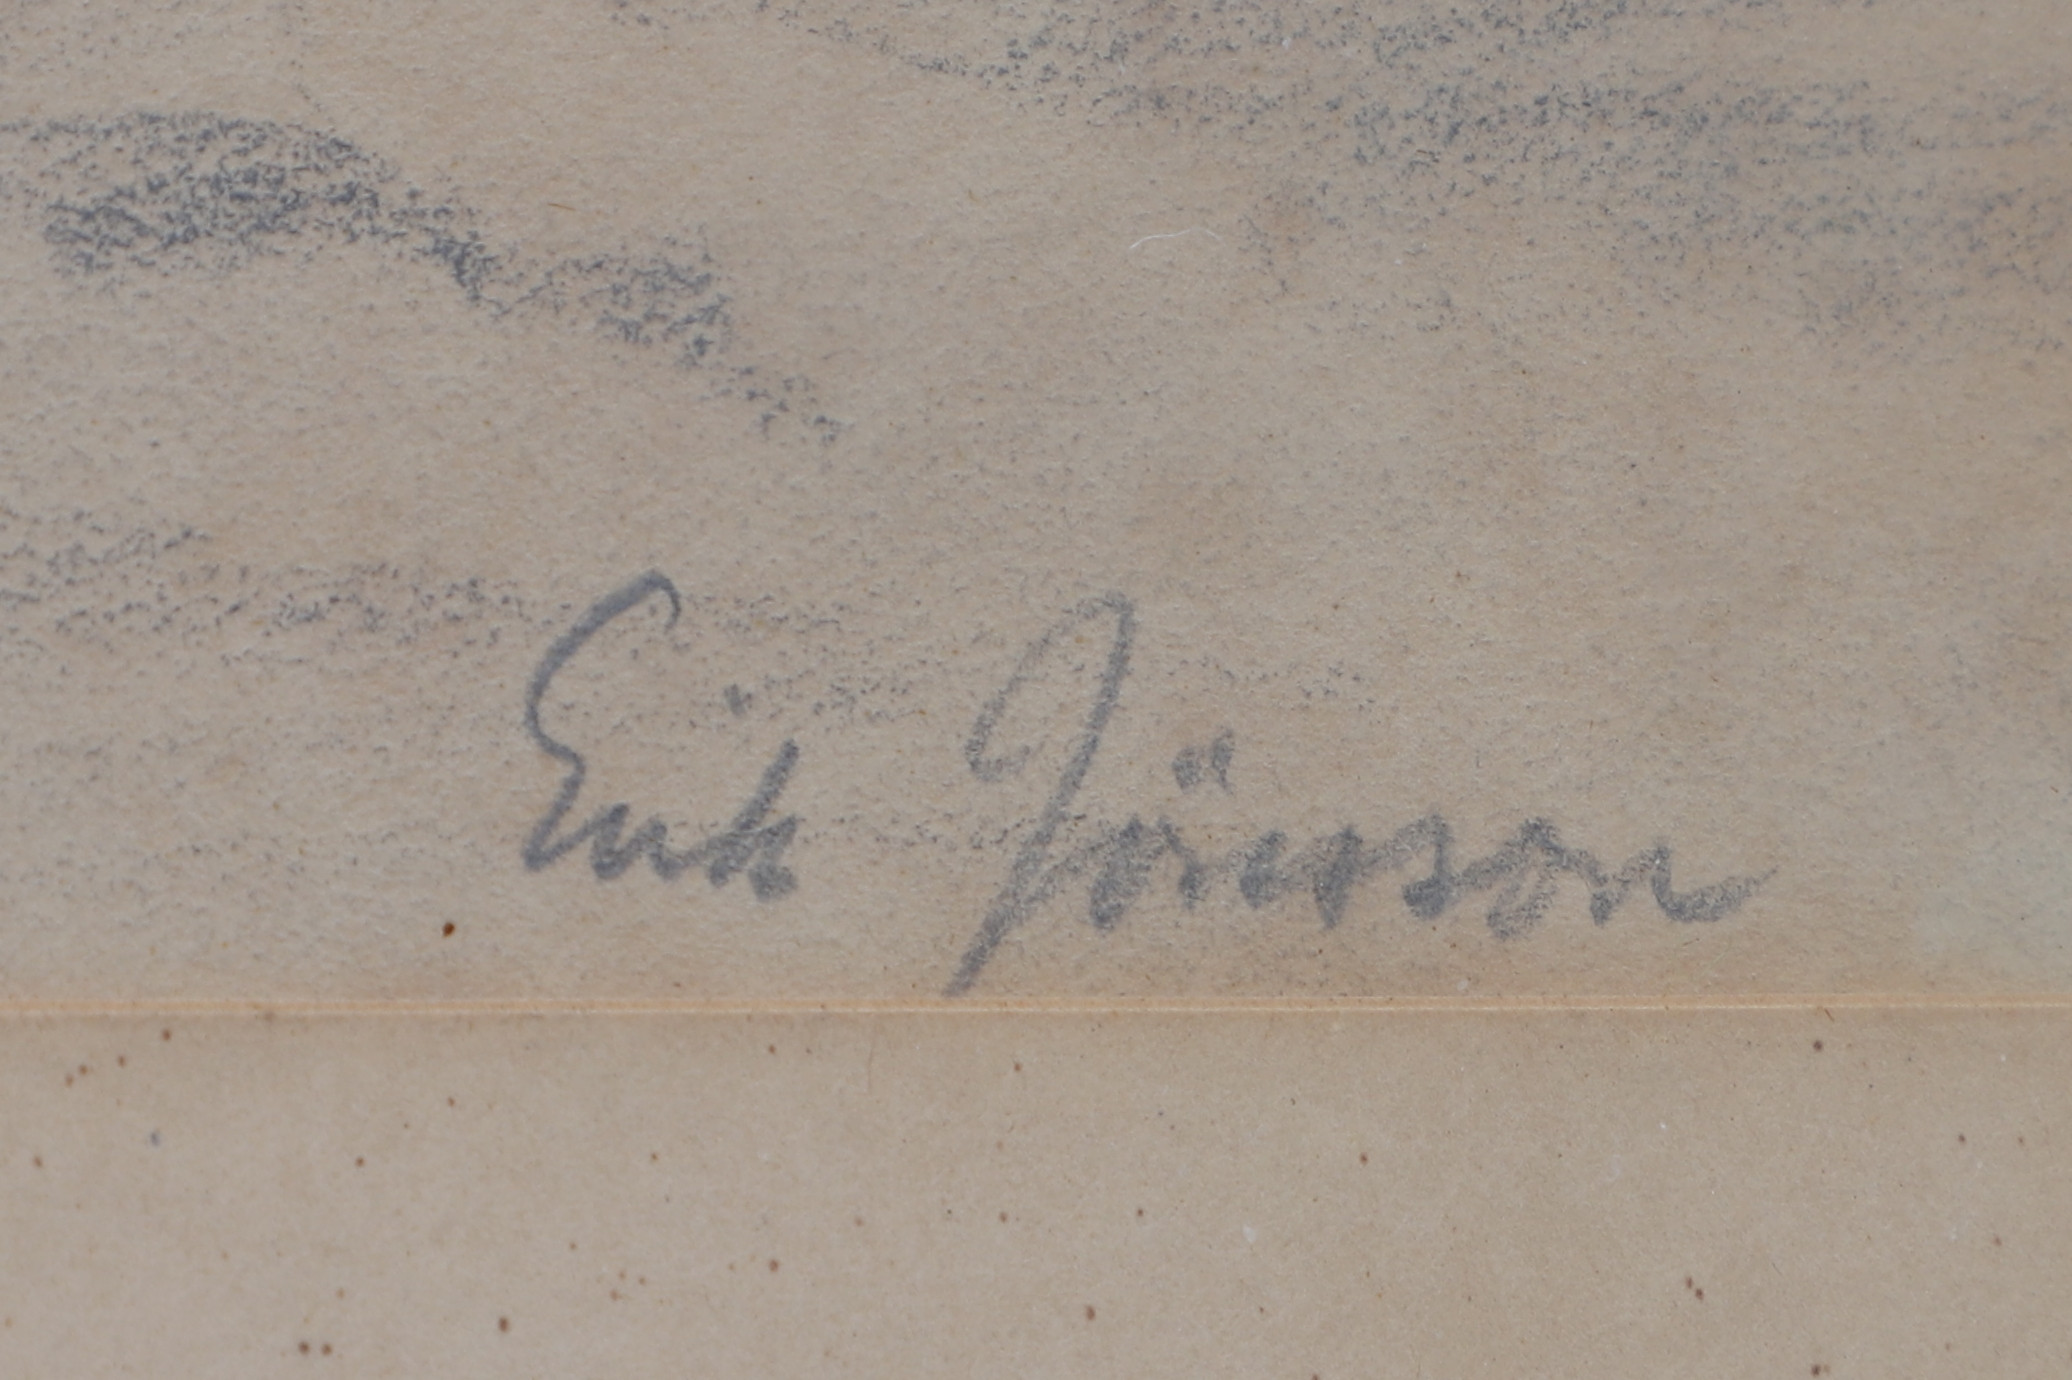 Erik Jönsson